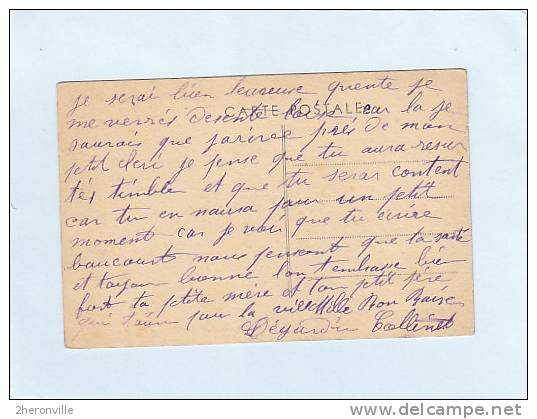 je serai bien heureuse quente je
CARTE POSTALE
me verrés desente car la je
saurais que jarive près de mon
ptit cheri je pense que tu aura resu
tés timble et que tu seras content
car tu en naura pour un petit
moment car je voi que tu ecrire
baucoust nous pensont que ta santé
et toujour bonne lon t'embrasse bien
fort ta ptite mère et ton ptit père
qui pour la vie Mille Bon Baisé
Déjardin
2heronville
http://www.delcampe.net